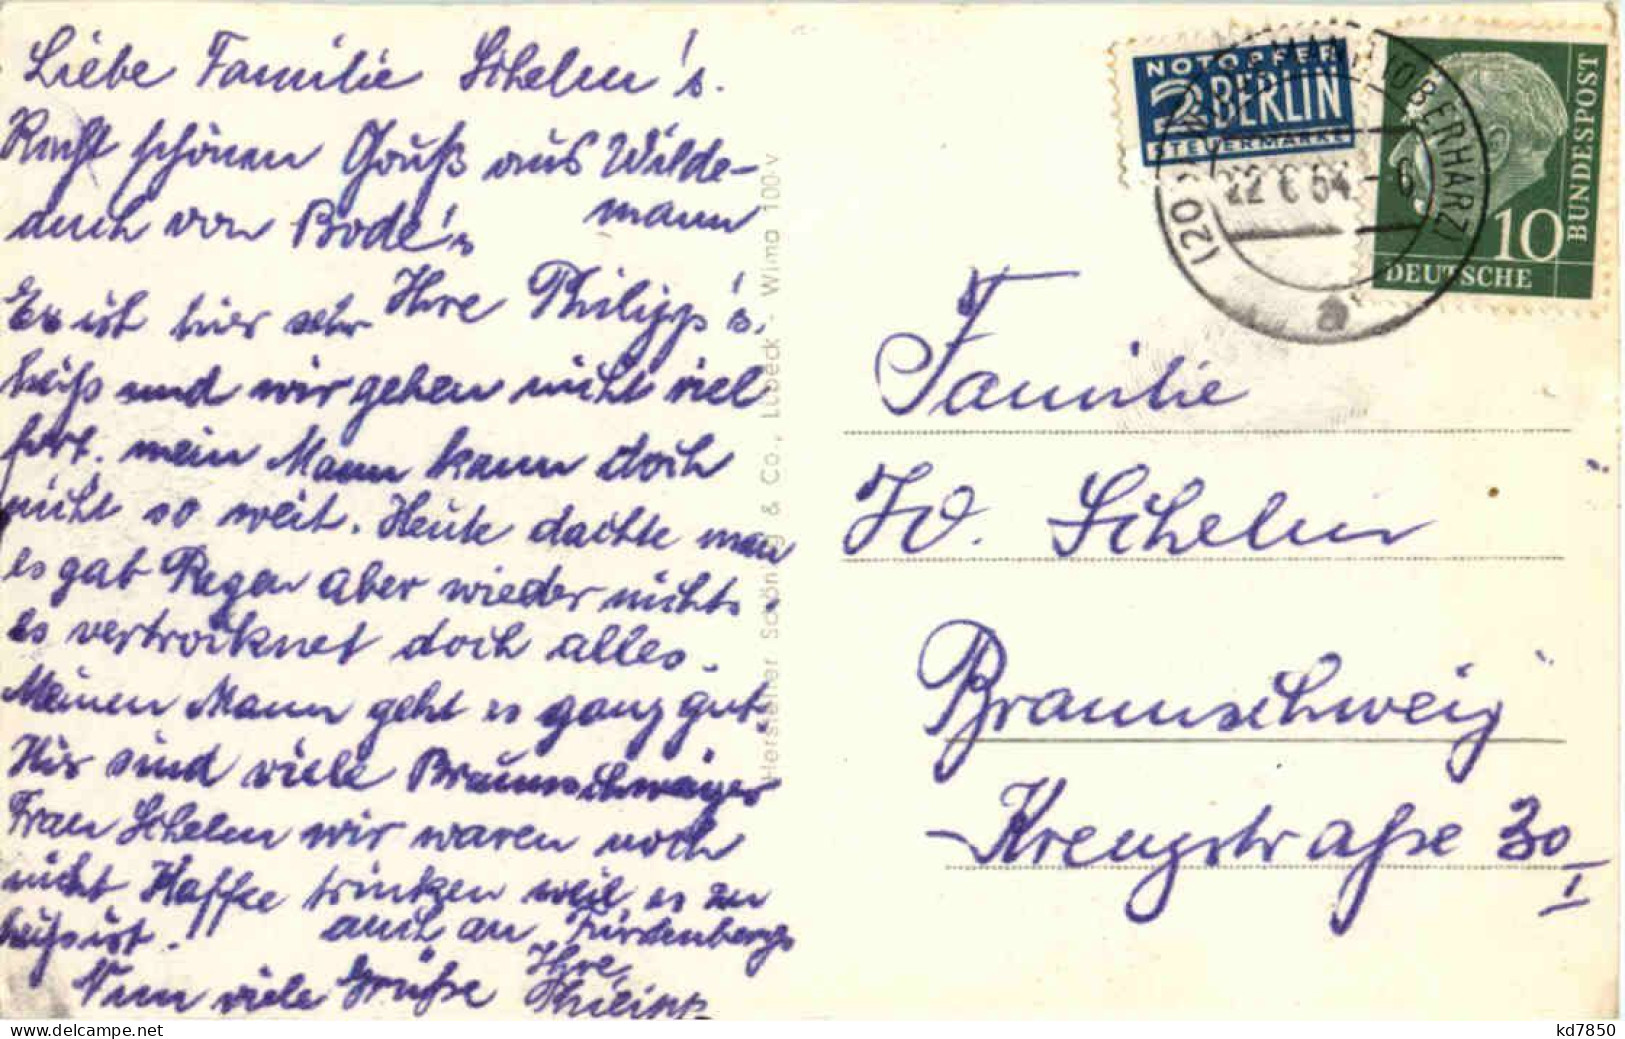 Liebe Familie Schelm's.
Recht schönen Gruß aus Wilde-
mann
auch von Bode's
Ihre Philipp's.
Es ist hier sehr
heiß und wir gehen nicht viel
fort. mein Mann kann doch
nicht so weit. Heute dachte man
es gab Regen aber wieder nichts.
es vertrocknet doch alles.
Meinen Mann geht es ganz gut.
Hir sind viele Braunschweiger
Frau Schelm wir waren noch
nicht Kaffee trinken weil es zu
heiß ist.
auch an Fürstenbergs
Nun viele Grüße Ihre
Philipp
Hersteller Schöning & Co., Lübeck - Wimo 100-V
NOTOPFER
2 BERLIN
STEUERMARKE
22 6 54 - 6
(20
OBERHARZ)
a
10
DEUTSCHE
BUNDESPOST
Familie
W. Schelm
Braunschweig
Kreuzstraße 30
I
kd7850